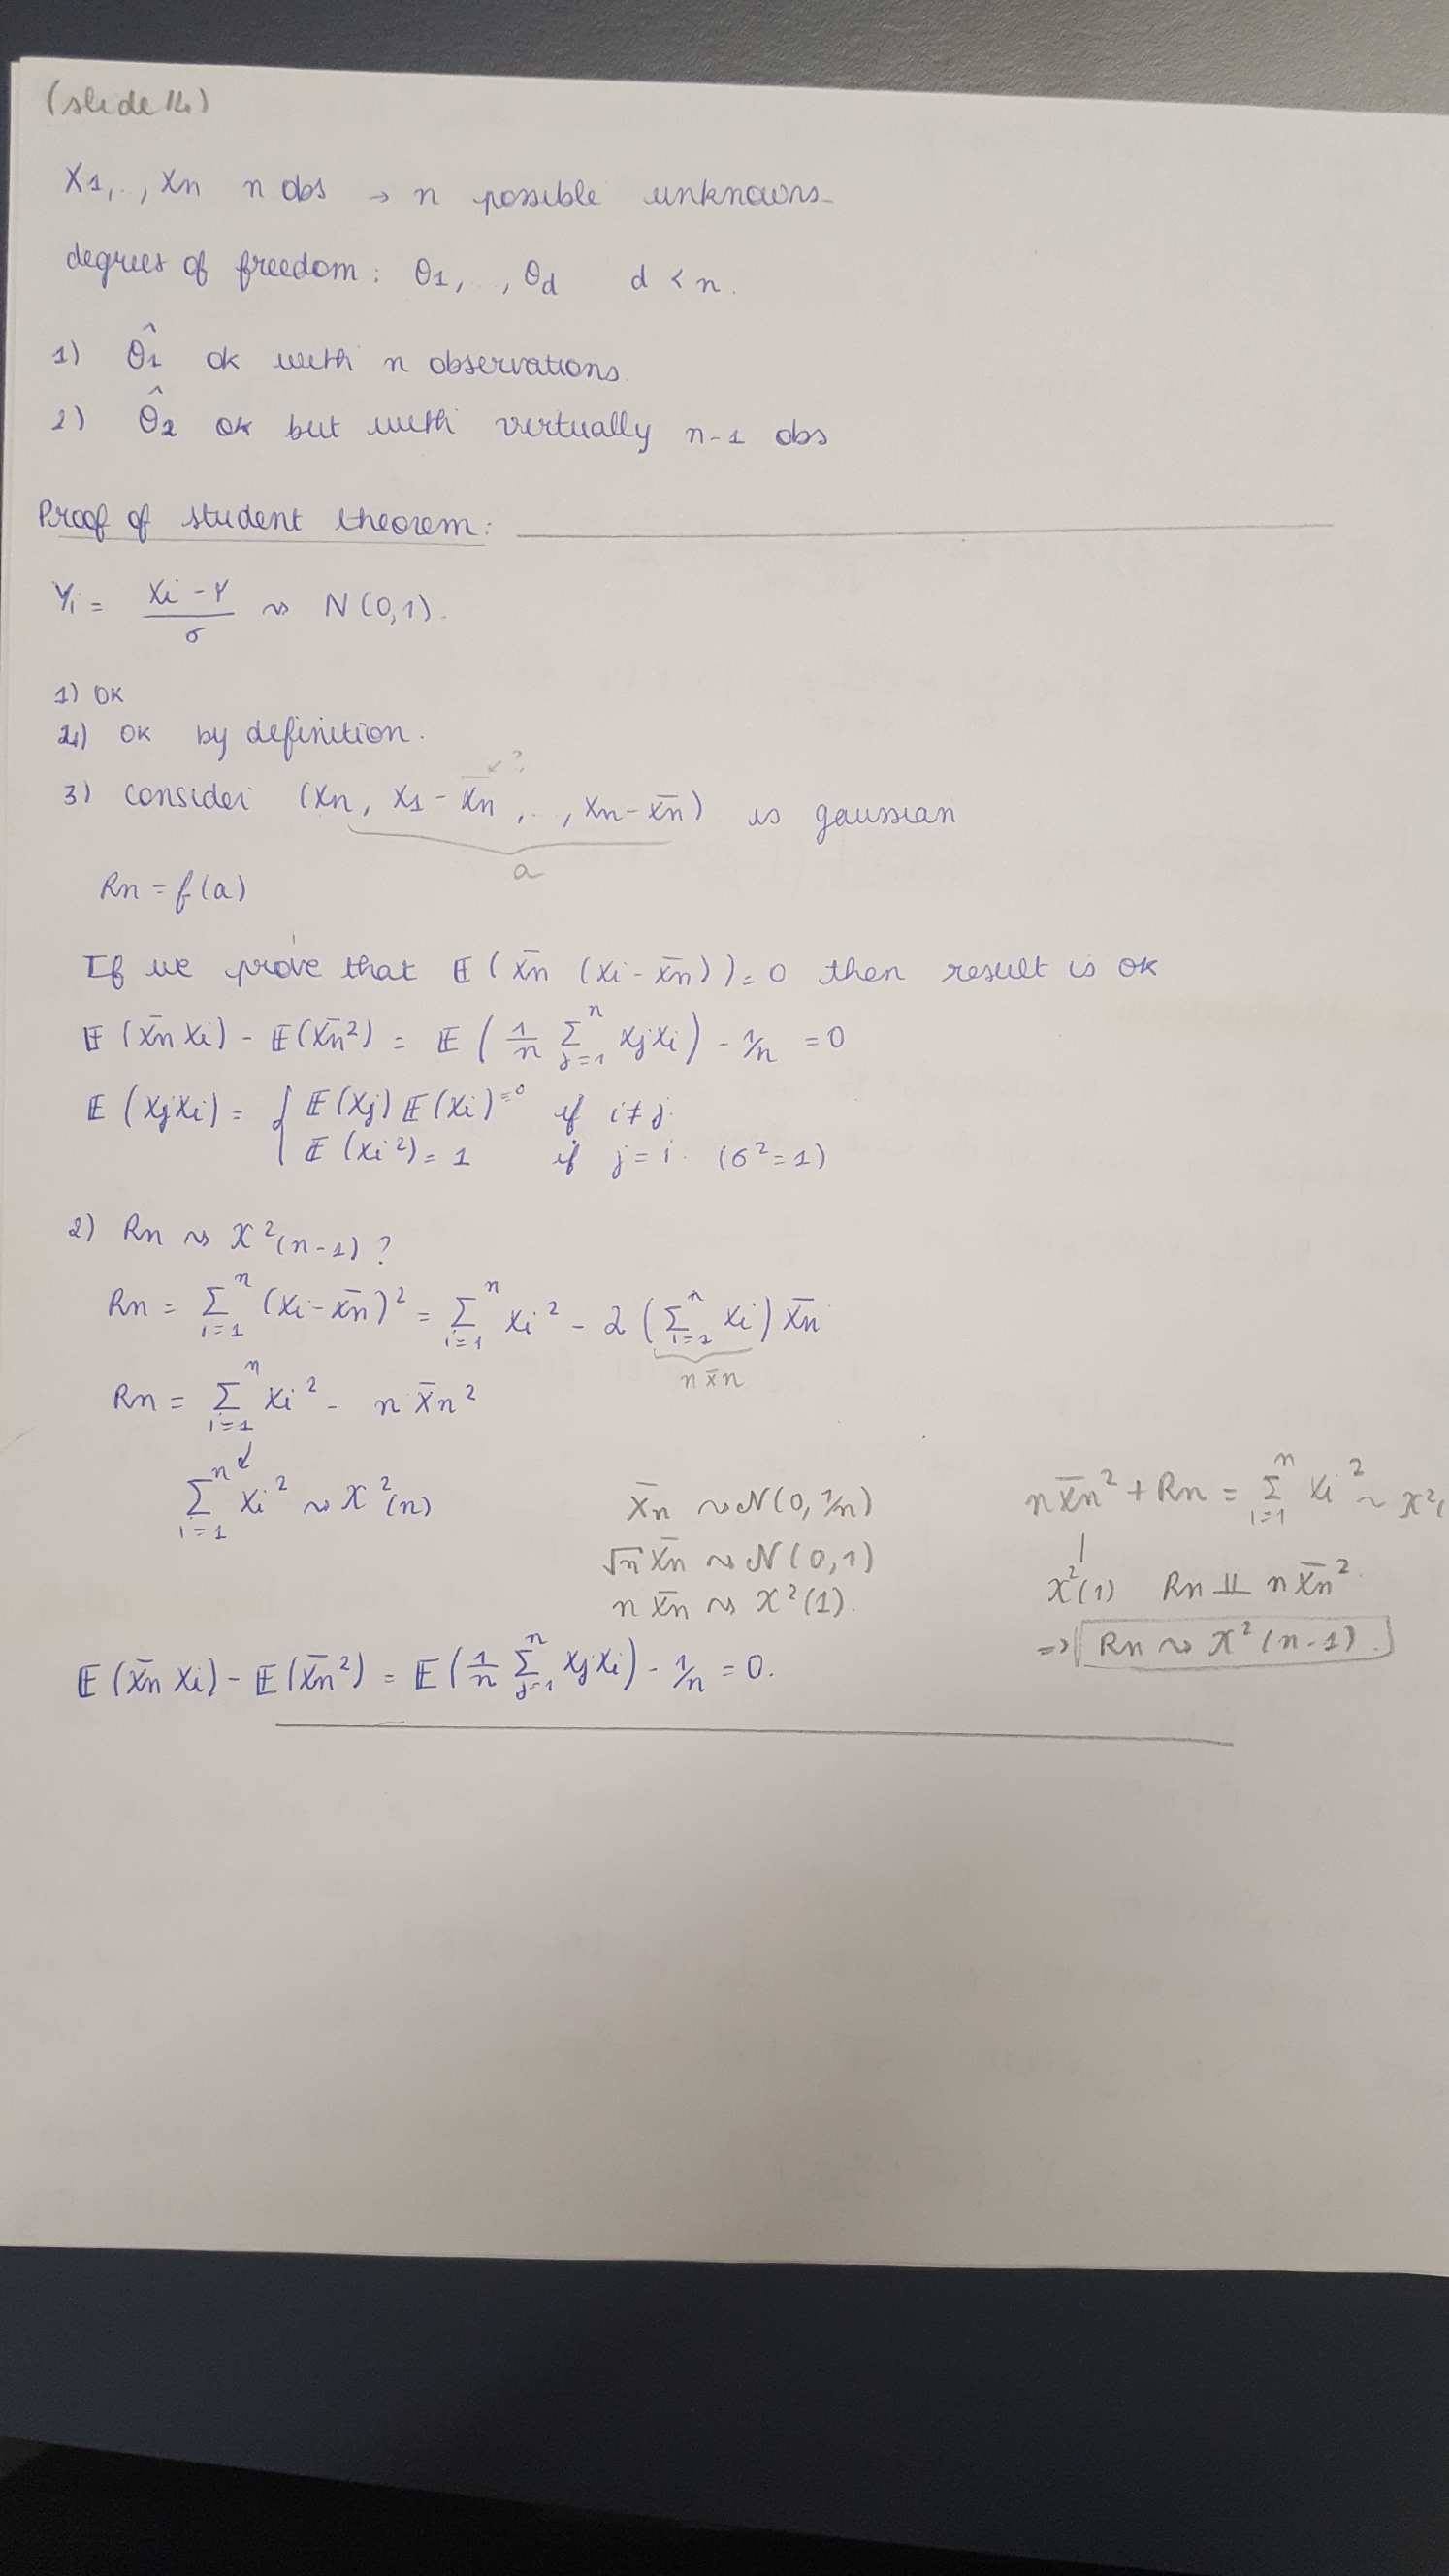 (slide 14)
X1,.., Xn n obs → n possible unknowns.
degrees of freedom: θ1, .., θd d < n.
1) θ̂1 ok with n observations.
2) θ̂2 ok but with virtually n-1 obs
Proof of student theorem:
Yi = (Xi - μ)/σ ~ N(0,1).
1) OK
4) OK by definition.
↙ ?
3) consider (Xn, X1 - X̄n, .., Xn - X̄n) is gaussian
a
Rn = f(a)
If we prove that E(X̄n (Xi - X̄n)) = 0 then result is OK
E(X̄n Xi) - E(X̄n²) = E(1/n Σ_{j=1}^n XjXi) - 1/n = 0
E(XjXi) = { E(Xj) E(Xi) = 0 if i≠j.
E(Xi²) = 1 if j = i. (σ² = 1)
2) Rn ~ χ²(n-1) ?
Rn = Σ_{i=1}^n (Xi - X̄n)² = Σ_{i=1}^n Xi² - 2 (Σ_{i=1}^n Xi) X̄n
n X̄n
Rn = Σ_{i=1}^n Xi² - n X̄n²
↙
Σ_{i=1}^n Xi² ~ χ²(n)
X̄n ~ N(0, 1/n)
√n X̄n ~ N(0,1)
n X̄n ~ χ²(1).
n X̄n² + Rn = Σ_{i=1}^n Xi² ~ χ²(
χ²(1) Rn ⫫ n X̄n².
=> Rn ~ χ²(n-1).
E(X̄n Xi) - E(X̄n²) = E(1/n Σ_{j=1}^n XjXi) - 1/n = 0.